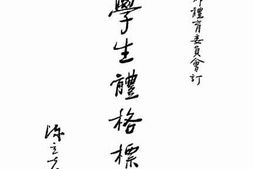 部體育委員會訂
學生體格標
陳立夫